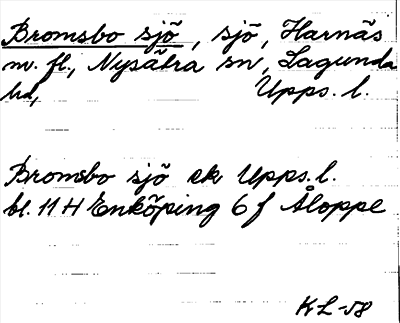 Bromsbo sjö, sjö, Harnäs
m. fl., Nysätra sn, Lagunda
hd, Upps. l.
Bromsbo sjö ek Upps. l.
bl. 11 H Enköping 6 f Åloppe
KL-58